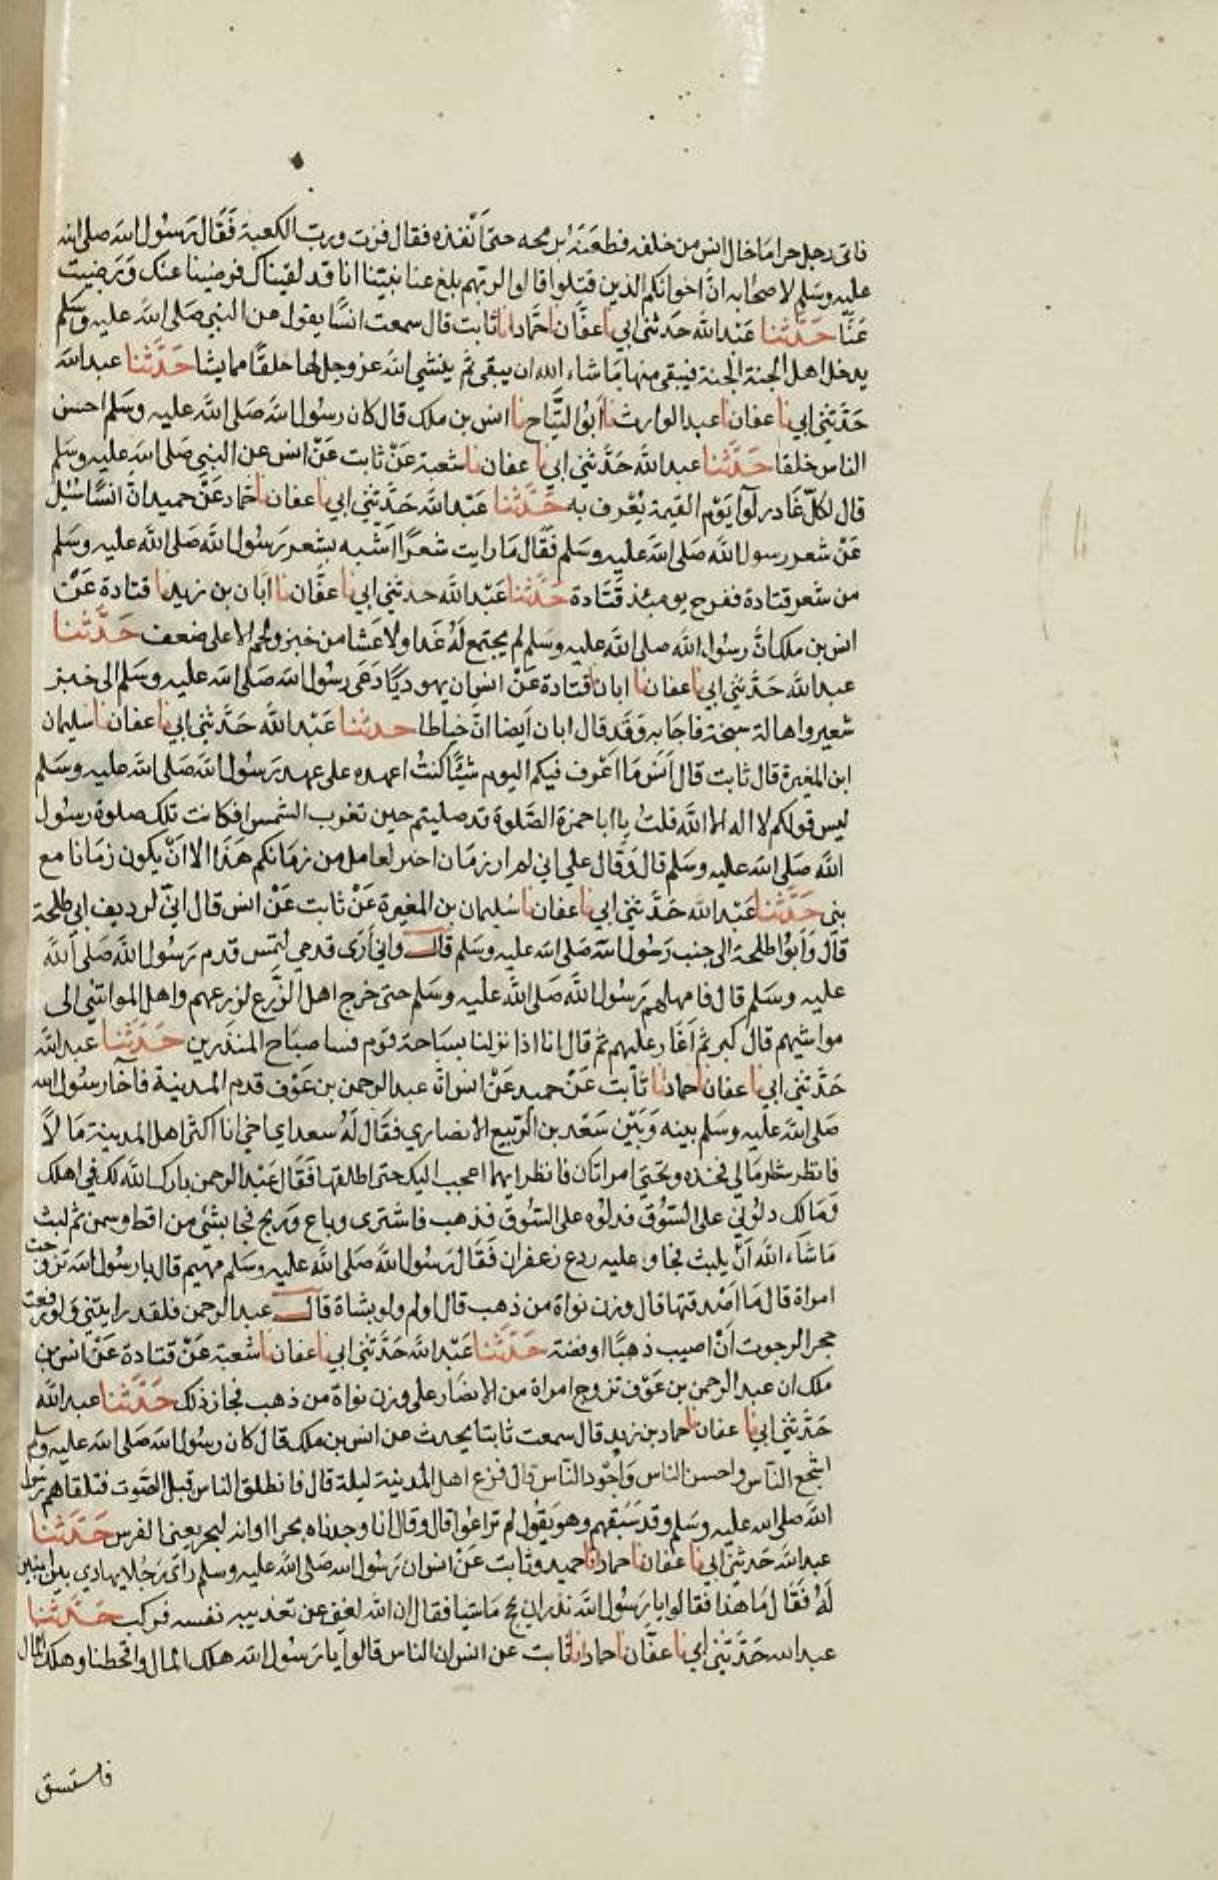 فاتى رجل حراما خال انس من خلفه فطعنه برمحه حتى أنفذه فقال فزت ورب الكعبة فقال رسول الله صلى الله
عليه وسلم لاصحابه ان اخوانكم الذين قتلوا قالوا لربهم بلغ عنا نبينا انا قد لقيناك فرضينا عنك ورضيت
عنا حدثنا عبد الله حدثني ابي نا عفان نا حماد انا ثابت قال سمعت انسا يقول عن النبي صلى الله عليه وسلم
يدخل اهل الجنة الجنة فيبقى منها ما شاء الله ان يبقى ثم ينشي الله عز وجل لها خلقا مما يشا حدثنا عبد الله
حدثني ابي نا عفان نا عبد الوارث نا ابو التياح نا انس بن ملك قال كان رسول الله صلى الله عليه وسلم احسن
الناس خلقا حدثنا عبد الله حدثني ابي نا عفان نا شعبة عن ثابت عن انس عن النبي صلى الله عليه وسلم
قال لكل غادر لوآ يوم القيمة يعرف به حدثنا عبد الله حدثني ابي نا عفان نا حماد عن حميد ان انسا سئل
عن شعر رسول الله صلى الله عليه وسلم فقال ما رايت شعرا اشبه بشعر رسول الله صلى الله عليه وسلم
من شعر قتادة ففرح يومئذ قتادة حدثنا عبد الله حدثني ابي نا عفان نا ابان بن زيد نا قتادة عن
انس بن ملك ان رسول الله صلى الله عليه وسلم لم يجتمع له غدا ولا عشا من خبز ولحم الا على ضعف حدثنا
عبد الله حدثني ابي نا عفان نا ابان نا قتادة عن انس ان يهوديا دعى رسول الله صلى الله عليه وسلم الى خبز
شعير واهالة سخة فاجابه وقد قال ابان أيضا ان خياطا حدثنا عبد الله حدثني ابي نا عفان نا سليمان
ابن المغيرة قال ثابت قال أنس ما اعرف فيكم اليوم شيئا كنت اعهده على عهد رسول الله صلى الله عليه وسلم
ليس قولكم لا اله الا الله قلت يا ابا حمزة الصلوة قد صليتم حين تغرب الشمس افكانت تلك صلوة رسول
الله صلى الله عليه وسلم قال فقال على اني لم ار زمان اخير لعامل من زمانكم هذا الا ان يكون زمانا مع
نبي حدثنا عبد الله حدثني ابي نا عفان نا سليمان بن المغيرة عن ثابت عن انس قال اني لرديف ابي طلحة
قال وأبوا طلحة الى جنب رسول الله صلى الله عليه وسلم قال واني أرى قدمي لتمس قدم رسول الله صلى الله
عليه وسلم قال فامهلهم رسول الله صلى الله عليه وسلم حتى خرج اهل الزرع لزرعهم واهل المواشي الى
مواشيهم قال كبر ثم اغار عليهم ثم قال انا اذا نزلنا بساحة قوم فسا صباح المنذرين حدثنا عبد الله
حدثني ابي نا عفان نا حماد انا ثابت عن حميد عن انس ان عبد الرحمن بن عوف قدم المدينة فآخا رسول الله
صلى الله عليه وسلم بينه وبين سعد بن الربيع الانصاري فقال له سعد اي اخي انا اكثر اهل المدينة مالا
فانظر شطر مالي فخذه وتحتي امراتان فانظر ايهما اعجب اليك حتى اطلقها فقال عبد الرحمن بارك الله لك في اهلك
ومالك دلوني على السوق فدلوه على السوق فذهب فاشترى وباع وربح فجا بشئ من اقط وسمن ثم لبث
ما شاء الله أن يلبث فجا وعليه ردع زعفران فقال رسول الله صلى الله عليه وسلم مهيم قال يا رسول الله تزوجت
امراة قال ما اصدقتها قال وزن نواة من ذهب قال اولم ولو بشاة قال عبد الرحمن فلقد رايتني ولو رفعت
حجرا لرجوت ان اصيب ذهبا او فضة حدثنا عبد الله حدثني ابي نا عفان نا شعبة عن قتادة عن انس بن
ملك ان عبد الرحمن بن عوف تزوج امراة من الانصار على وزن نواة من ذهب فجاز ذلك حدثنا عبد الله
حدثني ابي نا عفان نا حماد بن زيد قال سمعت ثابتا يحدث عن انس بن ملك قال كان رسول الله صلى الله عليه وسلم
اشجع الناس واحسن الناس وأجود الناس قال فزع اهل المدينة ليلة قال فانطلق الناس قبل الصوت فتلقاهم رسول
الله صلى الله عليه وسلم وقد سبقهم وهو يقول لم تراعوا قال وقال انا وجدناه بحرا او انه لبحر يعني الفرس حدثنا
عبد الله حدثني ابي نا عفان نا حماد انا حميد وثابت عن انس ان رسول الله صلى الله عليه وسلم راى رجلا يهادي بين ابنين
له فقال ما هذا فقالوا يا رسول الله نذر ان يحج ماشيا فقال إن الله لغني عن تعذيبه نفسه فركب حدثنا
عبد الله حدثني ابي نا عفان نا حماد انا ثابت عن انس ان الناس قالوا يا رسول الله هلك المال واقحطنا وهلك المال
فاستسق